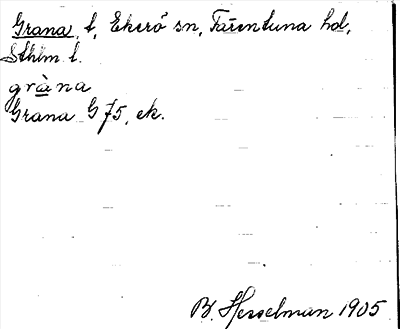 Grana, t, Ekerö sn, Färentuna hd,
Sthlm l.
gràna
Grana G 75, ek.
B. Hesselman 1905